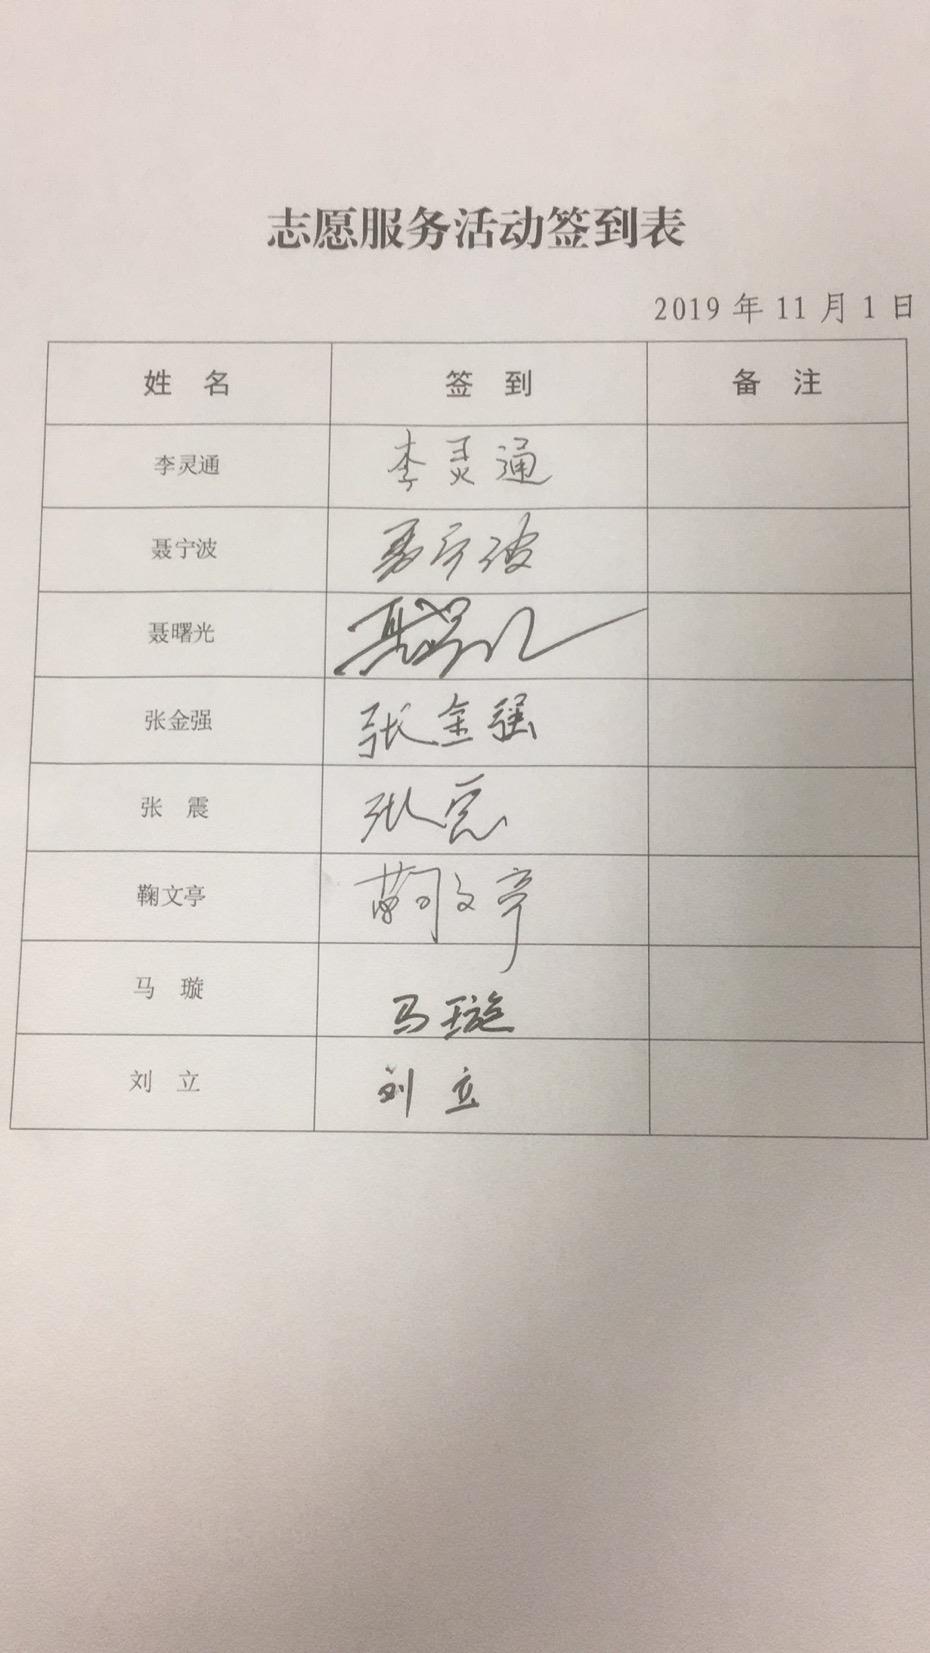 志愿服务活动签到表
2019 年 11 月 1 日
姓 名 签 到 备 注
李灵通 李灵通
聂宁波 聂宁波
聂曙光 聂曙光
张金强 张金强
张 震 张震
鞠文亭 鞠文亭
马 璇 马璇
刘 立 刘立